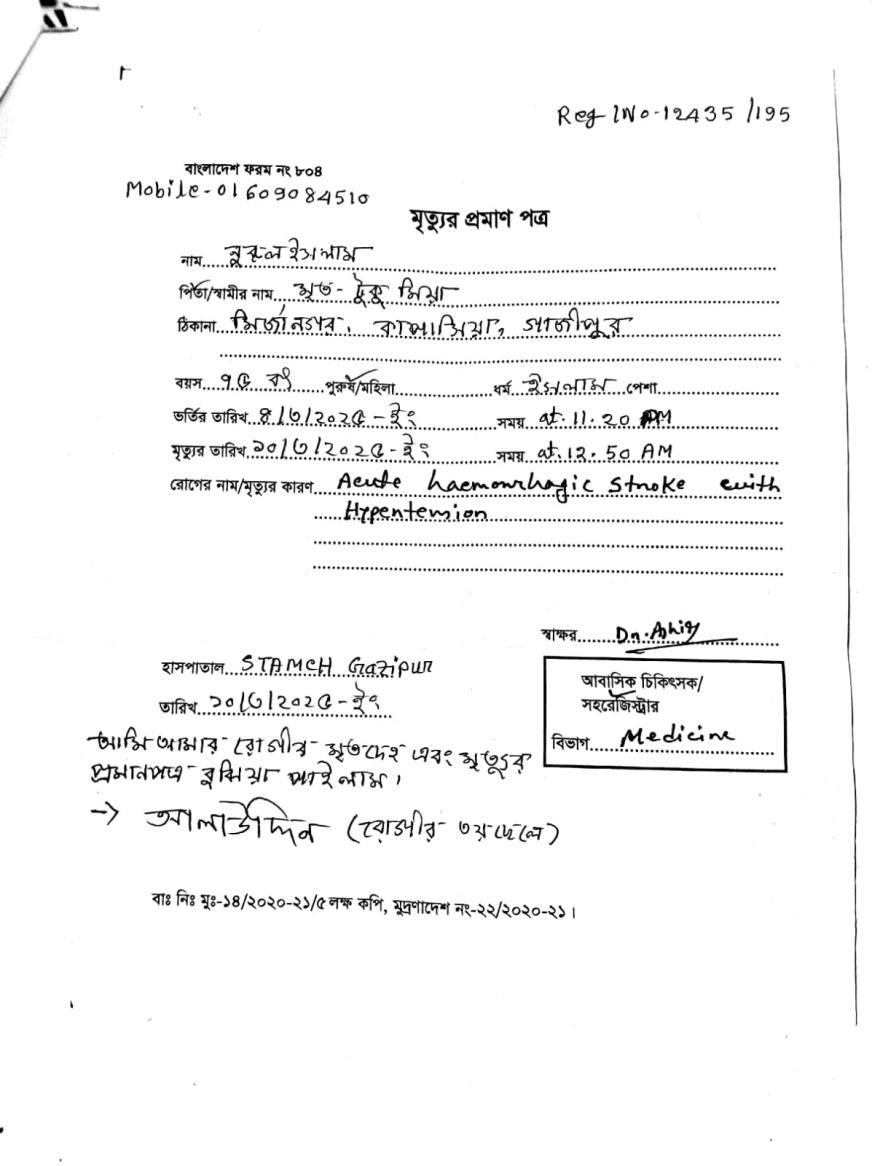 Reg No-12435/195
বাংলাদেশ ফরম নং ৮০৪
Mobile-01609084510
মৃত্যুর প্রমাণ পত্র
নাম....নুরুল ইসলাম
পিতা/স্বামীর নাম....মৃত- টুকু মিয়া
ঠিকানা...মির্জানগর, কাপাসিয়া, গাজীপুর
বয়স...৭৫ বৎ......পুরুষ/মহিলা..........ধর্ম..ইসলাম..পেশা
ভর্তির তারিখ..৪/৩/২০২৫-ইং..........সময়..at.11.20 PM
মৃত্যুর তারিখ..১০/৩/২০২৫-ইং..........সময়..at.12.50 AM
রোগের নাম/মৃত্যুর কারণ....Acute haemorrhagic Stroke with
Hypertension
স্বাক্ষর.......Dr.
হাসপাতাল...STAMCH Gazipur
তারিখ..১০/৩/২০২৫-ইং
আবাসিক চিকিৎসক/
সহরেজিস্ট্রার
বিভাগ....Medicine
আমি আমার রোগীর মৃতদেহ এবং মৃত্যুর
প্রমানপত্র বুঝিয়া পাইলাম।
→ আলাউদ্দিন (রোগীর ৩য় ছেলে)
বাঃ নিঃ মুঃ-১৪/২০২০-২১/৫ লক্ষ কপি, মুদ্রণাদেশ নং-২২/২০২০-২১।